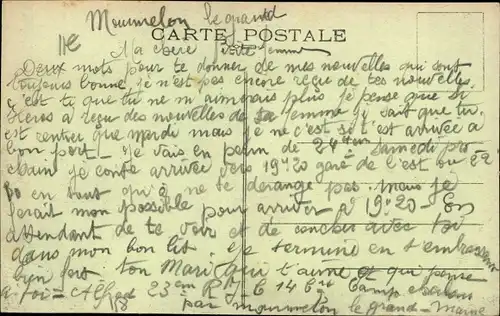 Mourmelon le grand
CARTE POSTALE
Ma chere petite femme
Deux mots pour te donner de mes nouvelles qui sont
toujours bonne je n'est pas encore reçu de tes nouvelles
c'est ty que tu ne m'aimerais plus je pense que si
a reçu des nouvelles de sa femme y sait que tu
est rentrer que mardi mais je ne c'est si t'est arrivée a
bon port - je vais en perm de 24 Samedi pro-
chain je conte arrivée vers 19h20 gare de l'est ou 22
en tout qu'a ne te derange pas mais je
ferait mon possible pour arriver a 19h20 - En
attendant de te voir et de coucher avec toi
dans mon bon lit je termine en t'embrassant
bien fort ton Mari qui t'aime et qui pense
a toi - Alfred 23em R 14e Camp
118 par mourmelon le grand - Marne